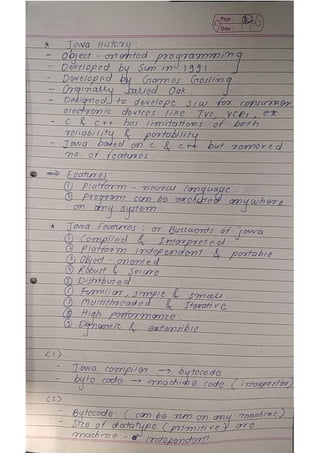 Page:
Date:
* Java History:
- Object - oriented programming
- Developed by Sun in 1991
- Developed by James Gosling.
- Originally called Oak.
- Designed to develope s/w for consumer
electronic devices like TVs, VCRs, etc
- C & C++ has limitations of both
reliability & portability
- Java based on C & C++ but removed
no. of features
⇒ Features:
① Platform - neural language.
② Program can be executed anywhere
on any system
* Java Features: or Buzwords of java
① Compiled & Interpreted
② Platform independent & portable
③ Object - oriented
④ Robust & Secure
⑤ Distributed
⑥ Familiar, simple & small
⑦ Multithreaded & Iterative
⑧ High performance.
⑨ Dynamic & extensible
(1)
- Java compiler → bytecode
- byte code → machine code (interpreter)
(2)
- Bytecode (can be run on any machine)
- Size of datatype (primitive) are
machine - independent